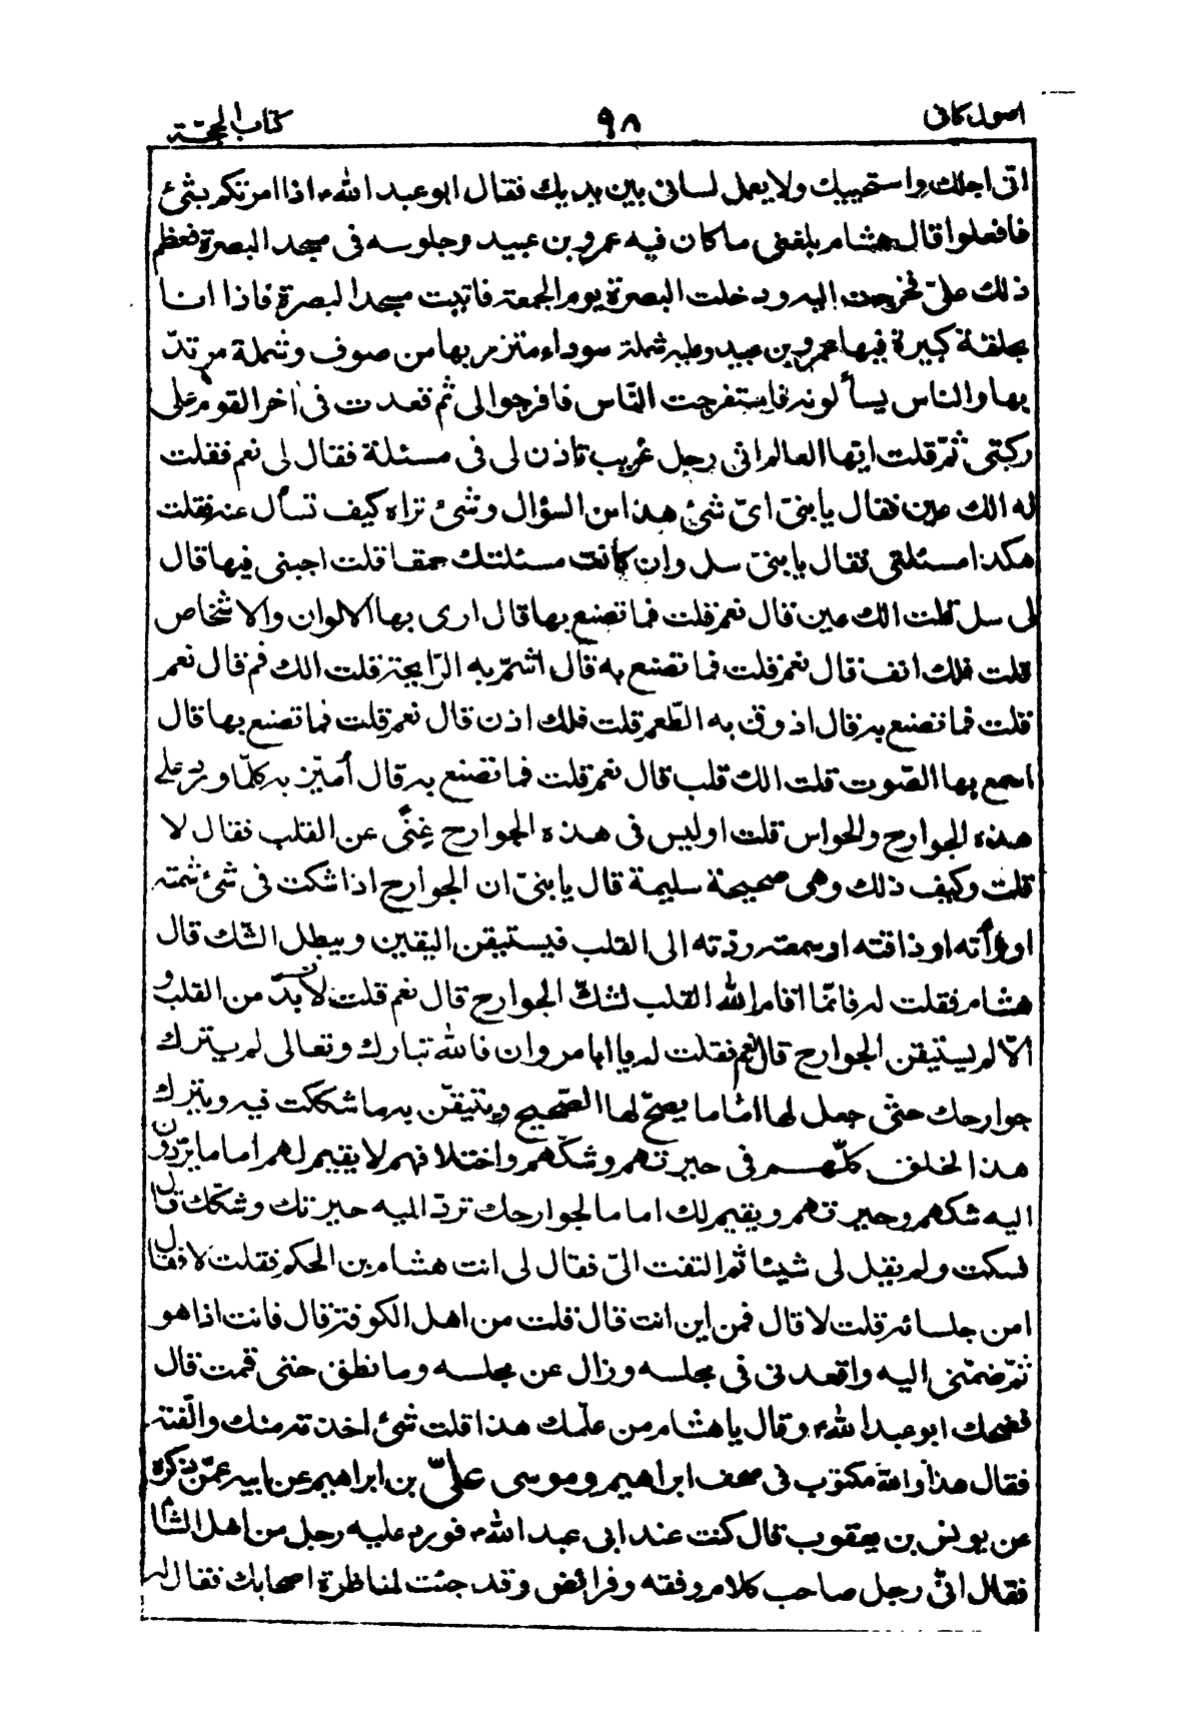 اصول كافى ٩٨ كتاب الحجّة
انى اجلك واستحييك ولا يعمل لسانى بين يديك فقال ابو عبد الله ء اذا امرتكم بشئ
فافعلوا قال هشام بلغنى ما كان فيه عمرو بن عبيد وجلوسه فى مسجد البصرة فعظم
ذلك علىّ فخرجت اليه ودخلت البصرة يوم الجمعة فاتيت مسجد البصرة فاذا انا
بحلقة كبيرة فيها عمرو بن عبيد وعليه شملة سوداء متزر بها من صوف وشملة مرتدّ
بها والناس يسألونه فاستفرجت النّاس فافرجوا لى ثم قعدت فى اخر القوم على
ركبتى ثمّ قلت ايّها العالم انى رجل غريب تاذن لى فى مسئلة فقال لى نعم فقلت
له الك عين فقال يا بنىّ اىّ شئ هذا من السؤال وشئ تراه كيف تسأل عنه فقلت
هكذا مسئلتى فقال يا بنىّ سل وان كانت مسئلتك حمقا قلت اجبنى فيها قال
لى سل قلت الك عين قال نعم قلت فما تصنع بها قال ارى بها الالوان والاشخاص
قلت فلك انف قال نعم قلت فما تصنع به قال اشمّ به الرّايحة قلت الك فم قال نعم
قلت فما تصنع به قال اذوق به الطّعم قلت فلك اذن قال نعم قلت فما تصنع بها قال
اسمع بها الصّوت قلت الك قلب قال نعم قلت فما تصنع به قال أميّز به كلّما ورد على
هذه الجوارح والحواس قلت اوليس فى هذه الجوارح غِنًى عن القلب فقال لا
قلت وكيف ذلك وهى صحيحة سليمة قال يا بنىّ ان الجوارح اذا شكت فى شئ شمته
او رأته او ذاقته او سمعته ردّته الى القلب فيستيقن اليقين ويبطل الشّك قال
هشام فقلت له فانّما اقام الله القلب لشكّ الجوارح قال نعم قلت لا بدّ من القلب و
الّا لم يستيقن الجوارح قال نعم فقلت له يا ابا مروان فالله تبارك وتعالى لم يترك
جوارحك حتّى جعل لها اماما يصحّ لها الصّحيح ويتيقّن به ما شككت فيه ويترك
هذا الخلق كلّهم فى حيرتهم وشكّهم واختلافهم لا يقيم لهم اماما يردّون
اليه شكهم وحيرتهم ويقيم لك اماما لجوارحك تردّ اليه حيرتك وشكّك قال
فسكت ولم يقل لى شيئا ثم التفت الىّ فقال لى انت هشام بن الحكم فقلت لا فقال
امن جلسائه قلت لا قال فمن اين انت قال قلت من اهل الكوفة قال فانت اذا هو
ثمّ ضمّنى اليه واقعدنى فى مجلسه وزال عن مجلسه وما نطق حتى قمت قال
فضحك ابو عبد الله ء وقال يا هشام من علّمك هذا قلت شئ اخذته منك والّفته
فقال هذا والله مكتوب فى صحف ابراهيم وموسى علىّ بن ابراهيم عن ابيه عمّن ذكره
عن يونس بن يعقوب قال كنت عند ابى عبد الله ء فورد عليه رجل من اهل الشأم
فقال انّى رجل صاحب كلام وفقه وفرائض وقد جئت لمناظرة اصحابك فقال له